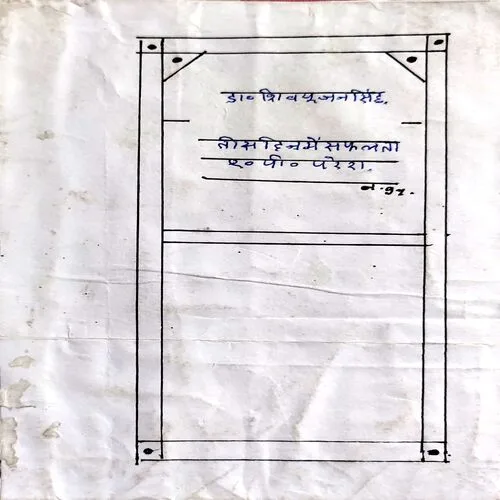 डा० शिव पूजन सिंह.
तीस दिन में सफलता
ए० पी० परेरा.
न. 97.